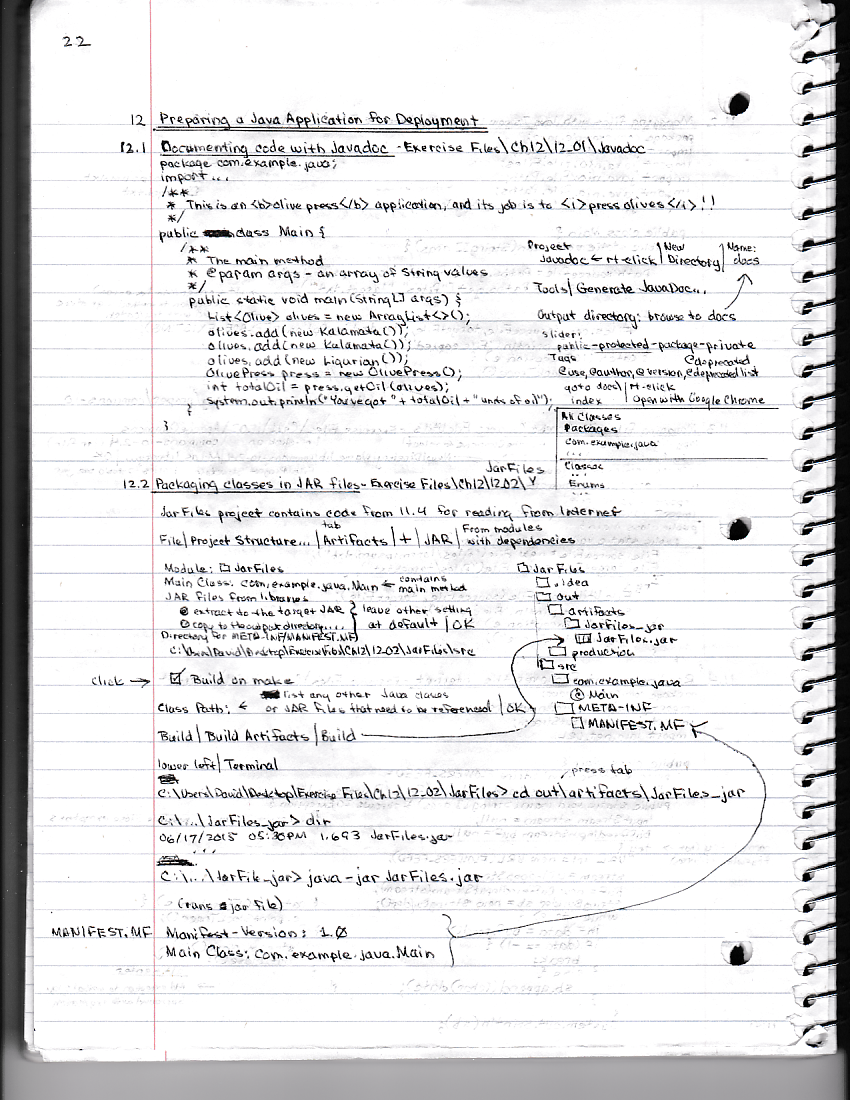 22
12 Preparing a Java Application for Deployment
12.1 Documenting code with Javadoc - Exercise Files\Ch12\12_01\Javadoc
package com.example.java;
import ...
/**
* This is an <b>olive press</b> application, and its job is to <i>press olives</i>!!
*/
public class Main {
/**
* The main method
* @param args - an array of String values
*/
public static void main(String[] args) {
List<Olive> olives = new ArrayList<>();
olives.add(new Kalamata());
olives.add(new Kalamata());
olives.add(new Ligurian());
OlivePress press = new OlivePress();
int totalOil = press.getOil(olives);
System.out.println("You've got " + totalOil + " units of oil");
}
}
Project | New | Name:
Javadoc ← rt-click | Directory | docs
Tools | Generate JavaDoc...
Output directory: browse to docs
slider:
public-protected-package-private
Tags @deprecated
@use, @author, @version, @deprecated list
goto docs | rt-click
index | Open with Google Chrome
All Classes
Packages
com.example.java
...
Classes
...
Enums
JarFiles
12.2 Packaging classes in JAR files - Exercise Files\Ch12\12_02\
JarFiles project contains code from 11.4 for reading from Internet
tab From modules
File | Project Structure... | Artifacts | + | JAR | with dependencies
Module: JarFiles
Main Class: com.example.java.Main ← contains main method
JAR files from libraries
extract to the target JAR } leave other setting
copy to the output directory.... } at default | OK
Directory for META-INF/MANIFEST.MF
C:\Users\David\Desktop\Exercise Files\Ch12\12_02\JarFiles\src
click → Build on make
list any other Java classes
Class Path: ← or JAR files that need to be referenced | OK
Build | Build Artifacts | Build
JarFiles
.idea
out
artifacts
JarFiles_jar
JarFiles.jar
production
src
com.example.java
Main
META-INF
MANIFEST.MF
lower left | Terminal
press tab
C:\Users\David\Desktop\Exercise Files\Ch12\12_02\JarFiles> cd out\artifacts\JarFiles_jar
C:\...\JarFiles_jar> dir
06/17/2015 05:30PM 1.693 JarFiles.jar
...
C:\...\JarFile_jar> java -jar JarFiles.jar
(runs jar file)
MANIFEST.MF Manifest-Version: 1.0
Main Class: com.example.java.Main